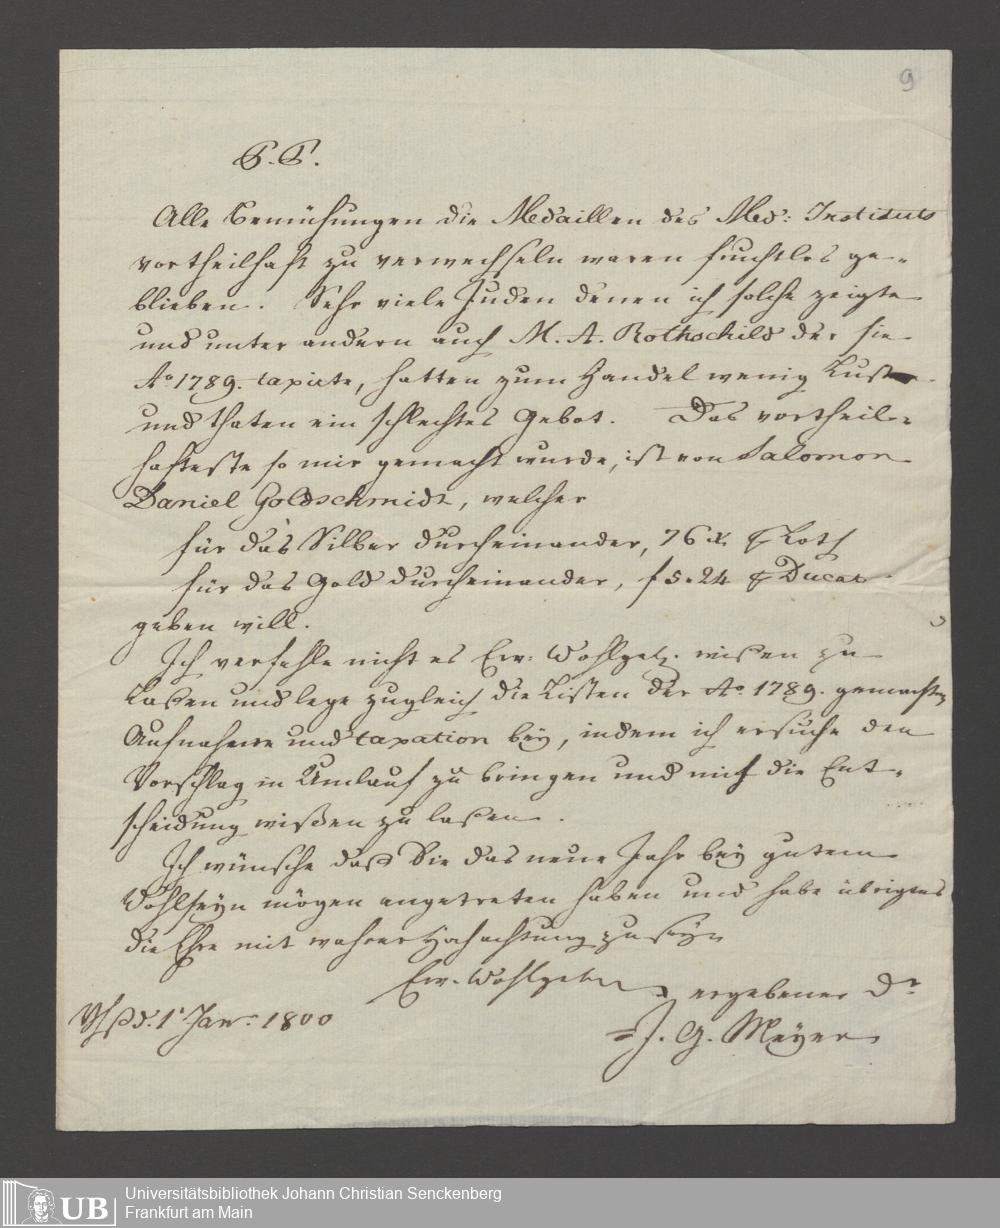 9
P. P.
Alle Bemühungen die Medaillen des Med: Instituts
vortheilhaft zu verwechseln waren fruchtlos ge-
blieben. Sehr viele Juden denen ich solche zeigte
und unter andern auch M. A. Rothschild der sie
Ao 1789. taxirte, hatten zum Handel wenig Lust
und thaten ein schlechtes Gebot. Das vortheil-
hafteste so mir gemacht wurde, ist von Salomon
Daniel Goldschmidt, welcher
für das Silber durcheinander, 76 x. Loth
für das Gold durcheinander, f 5. 24 Ducat
geben will.
Ich verfehle nicht es Ew: Wohlgeb. wißen zu
laßen und lege zugleich die Listen der Ao 1789. gemachten
Aufnahme und taxation bey, indem ich ersuche den
Vorschlag in Umlauf zu bringen und mich die Ent-
scheidung wißen zu laßen.
Ich wünsche daß Sie das neue Jahr bey gutem
Wohlseyn mögen angetreten haben und habe übrigens
die Ehre mit wahrer Hochachtung zu seyn
Ew. Wohlgeb. ergebener Dr
d. 1 Jan. 1800
J. G. Meyer
UB
Universitätsbibliothek Johann Christian Senckenberg
Frankfurt am Main